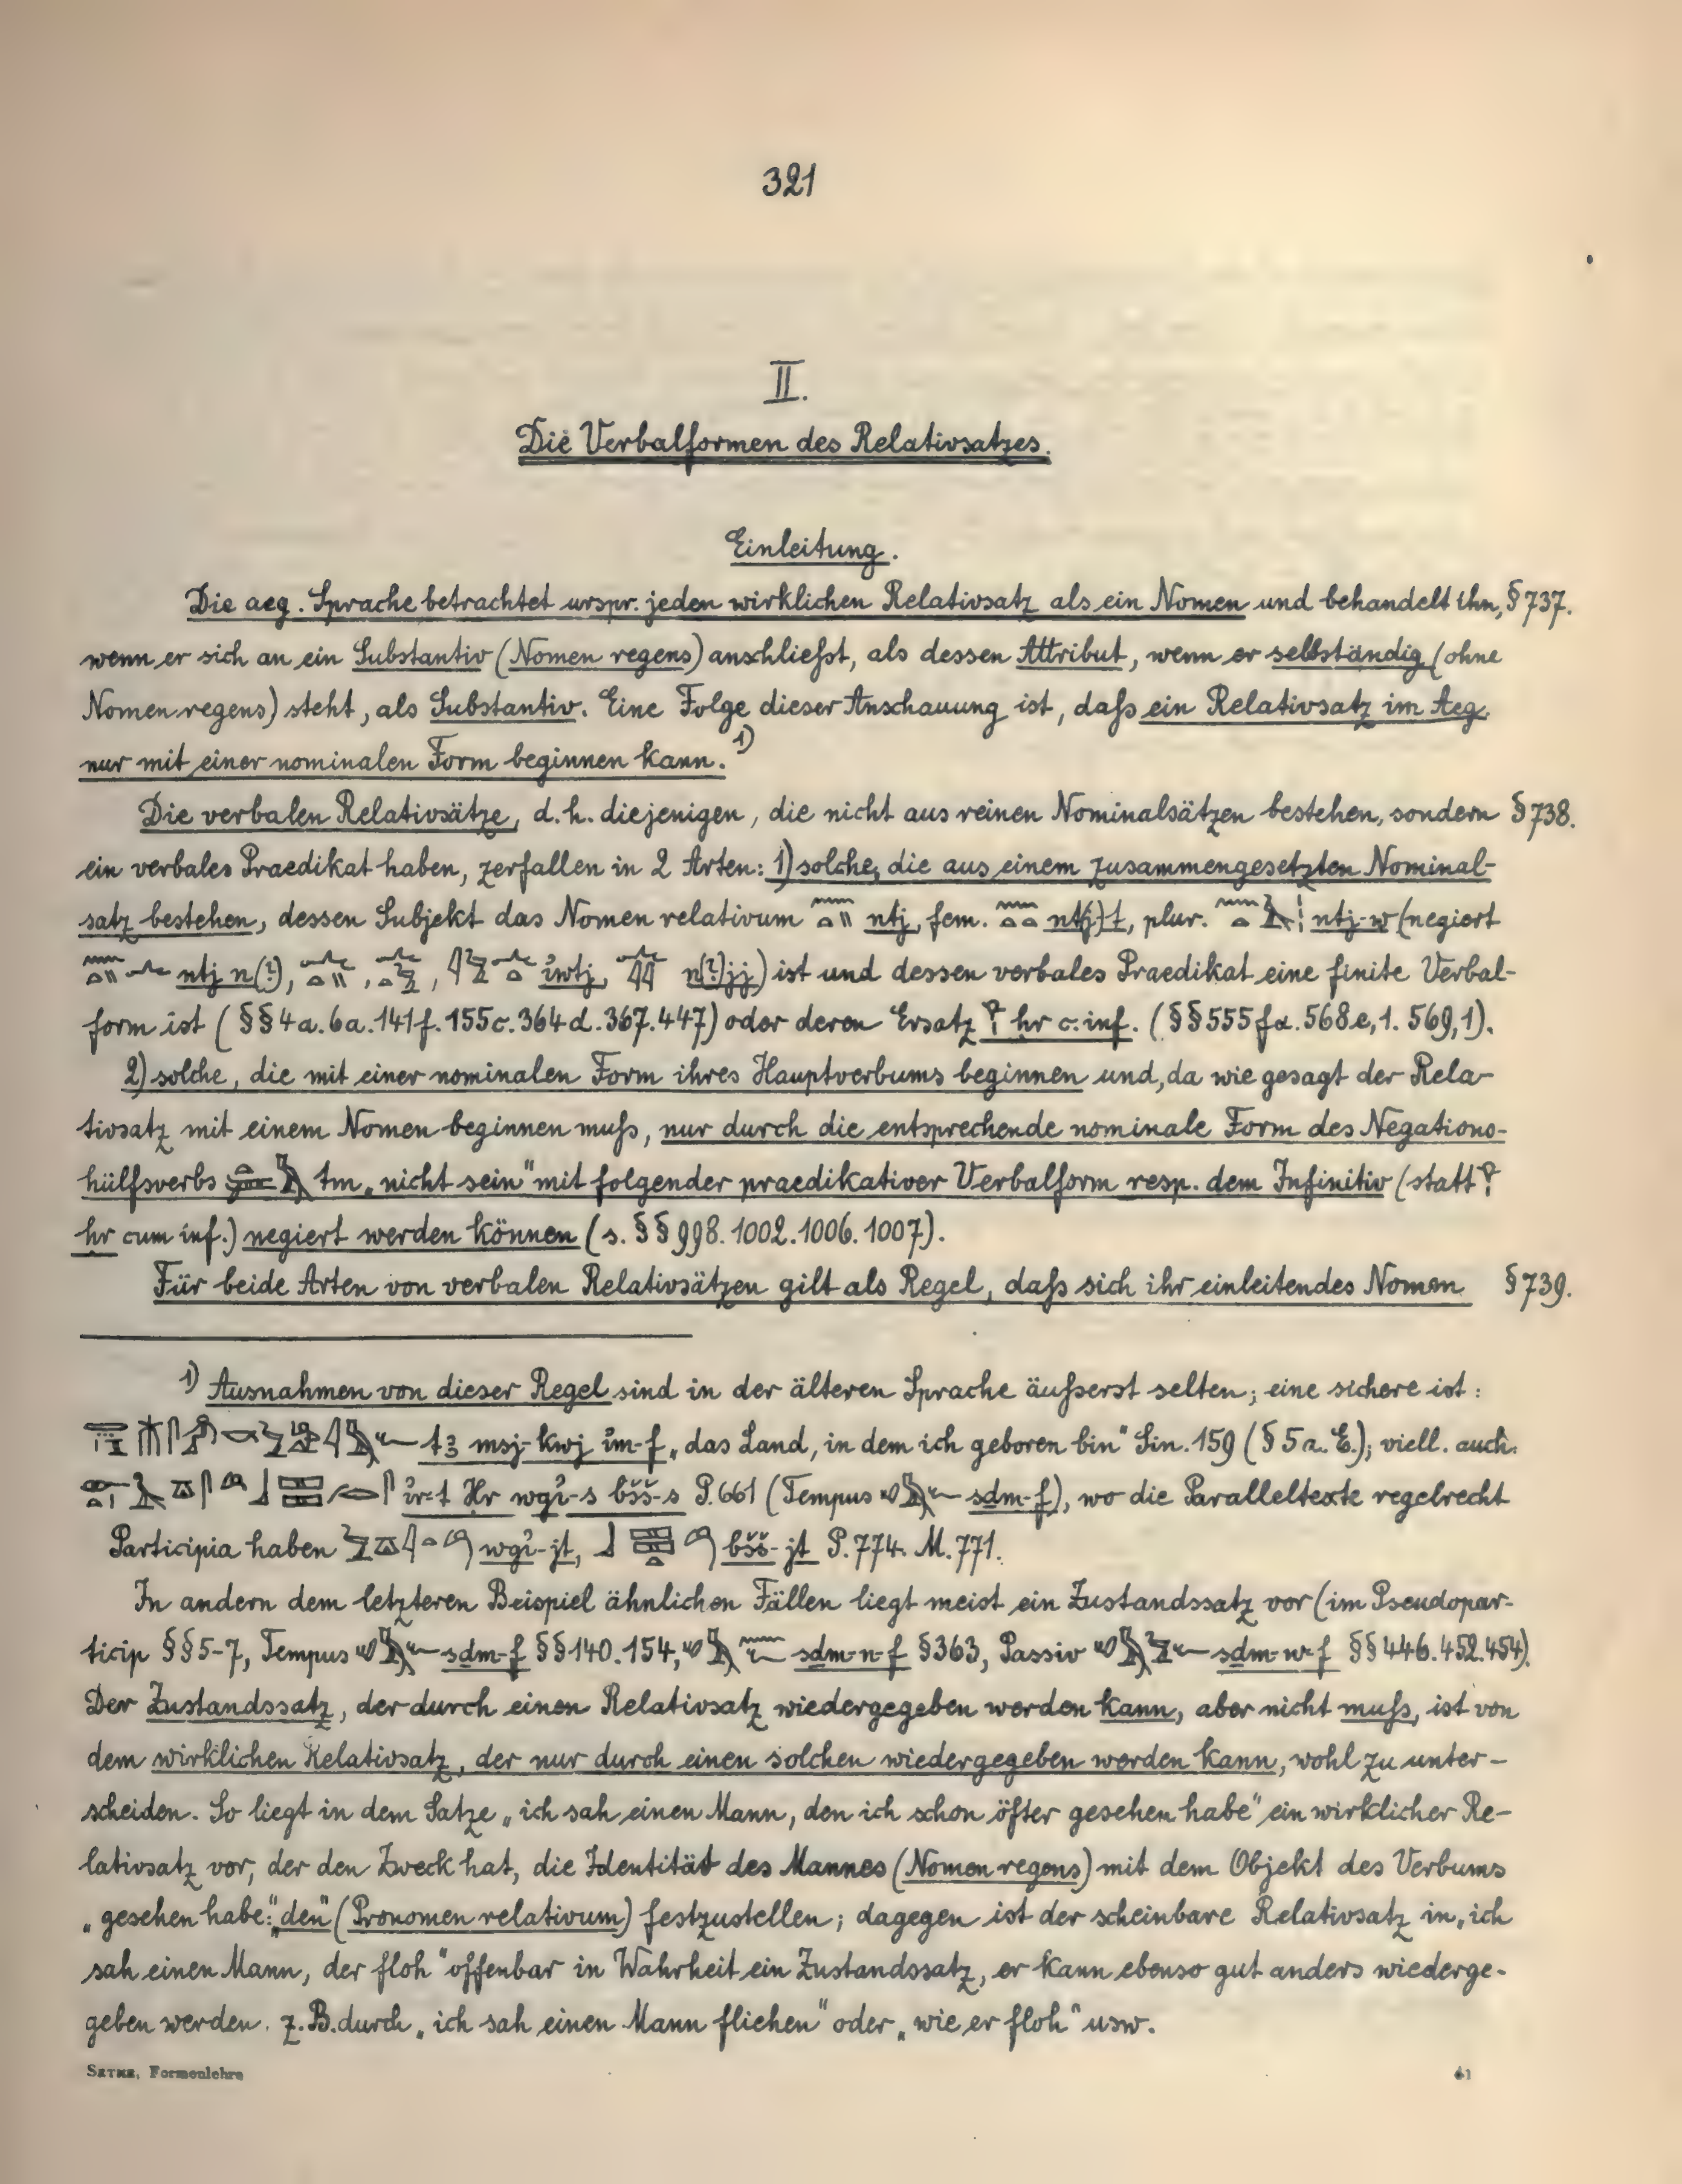 321
II.
Die Verbalformen des Relativsatzes.
Einleitung.
Die aeg. Sprache betrachtet urspr. jeden wirklichen Relativsatz als ein Nomen und behandelt ihn, § 737.
wenn er sich an ein Substantiv (Nomen regens) anschließt, als dessen Attribut, wenn er selbständig (ohne
Nomen regens) steht, als Substantiv. Eine Folge dieser Anschauung ist, daß ein Relativsatz im Aeg.
nur mit einer nominalen Form beginnen kann. 1)
Die verbalen Relativsätze, d.h. diejenigen, die nicht aus reinen Nominalsätzen bestehen, sondern § 738.
ein verbales Praedikat haben, zerfallen in 2 Arten: 1) solche, die aus einem zusammengesetzten Nominal-
satz bestehen, dessen Subjekt das Nomen relativum ntj, fem. nt(j)-t, plur. ntj-w (negiert
ntj n(?), , , iwtj, n(?)jj) ist und dessen verbales Praedikat eine finite Verbal-
form ist (§§ 4a. 6a. 141f. 155c. 364d. 367. 447) oder deren Ersatz ḥr c. inf. (§§ 555fα. 568e,1. 569,1).
2) solche, die mit einer nominalen Form ihres Hauptverbums beginnen und, da wie gesagt der Rela-
tivsatz mit einem Nomen beginnen muß, nur durch die entsprechende nominale Form des Negations-
hülfsverbs tm „nicht sein" mit folgender praedikativer Verbalform resp. dem Infinitiv (statt
ḥr cum inf.) negiert werden können (s. §§ 998. 1002. 1006. 1007).
Für beide Arten von verbalen Relativsätzen gilt als Regel, daß sich ihr einleitendes Nomen § 739.
1) Ausnahmen von dieser Regel sind in der älteren Sprache äußerst selten; eine sichere ist:
tꜣ msj-kwj im-f „das Land, in dem ich geboren bin" Sin. 159 (§ 5a. E.); viell. auch
ir-t Ḥr wgi-s bšš-s P. 661 (Tempus sḏm-f), wo die Paralleltexte regelrecht
Participia haben wgi-jt, bšš-jt P. 774. M. 771.
In andern dem letzteren Beispiel ähnlichen Fällen liegt meist ein Zustandssatz vor (im Pseudopar-
ticip §§ 5-7, Tempus sḏm-f §§ 140. 154, sḏm-n-f § 363, Passiv sḏm-w-f §§ 446. 452. 454).
Der Zustandssatz, der durch einen Relativsatz wiedergegeben werden kann, aber nicht muß, ist von
dem wirklichen Relativsatz, der nur durch einen solchen wiedergegeben werden kann, wohl zu unter-
scheiden. So liegt in dem Satze „ich sah einen Mann, den ich schon öfter gesehen habe" ein wirklicher Re-
lativsatz vor, der den Zweck hat, die Identität des Mannes (Nomen regens) mit dem Objekt des Verbums
„gesehen habe": „den" (Pronomen relativum) festzustellen; dagegen ist der scheinbare Relativsatz in „ich
sah einen Mann, der floh" offenbar in Wahrheit ein Zustandssatz, er kann ebenso gut anders wiederge-
geben werden. z.B. durch „ich sah einen Mann fliehen" oder „wie er floh" usw.
SETHE, Formenlehre